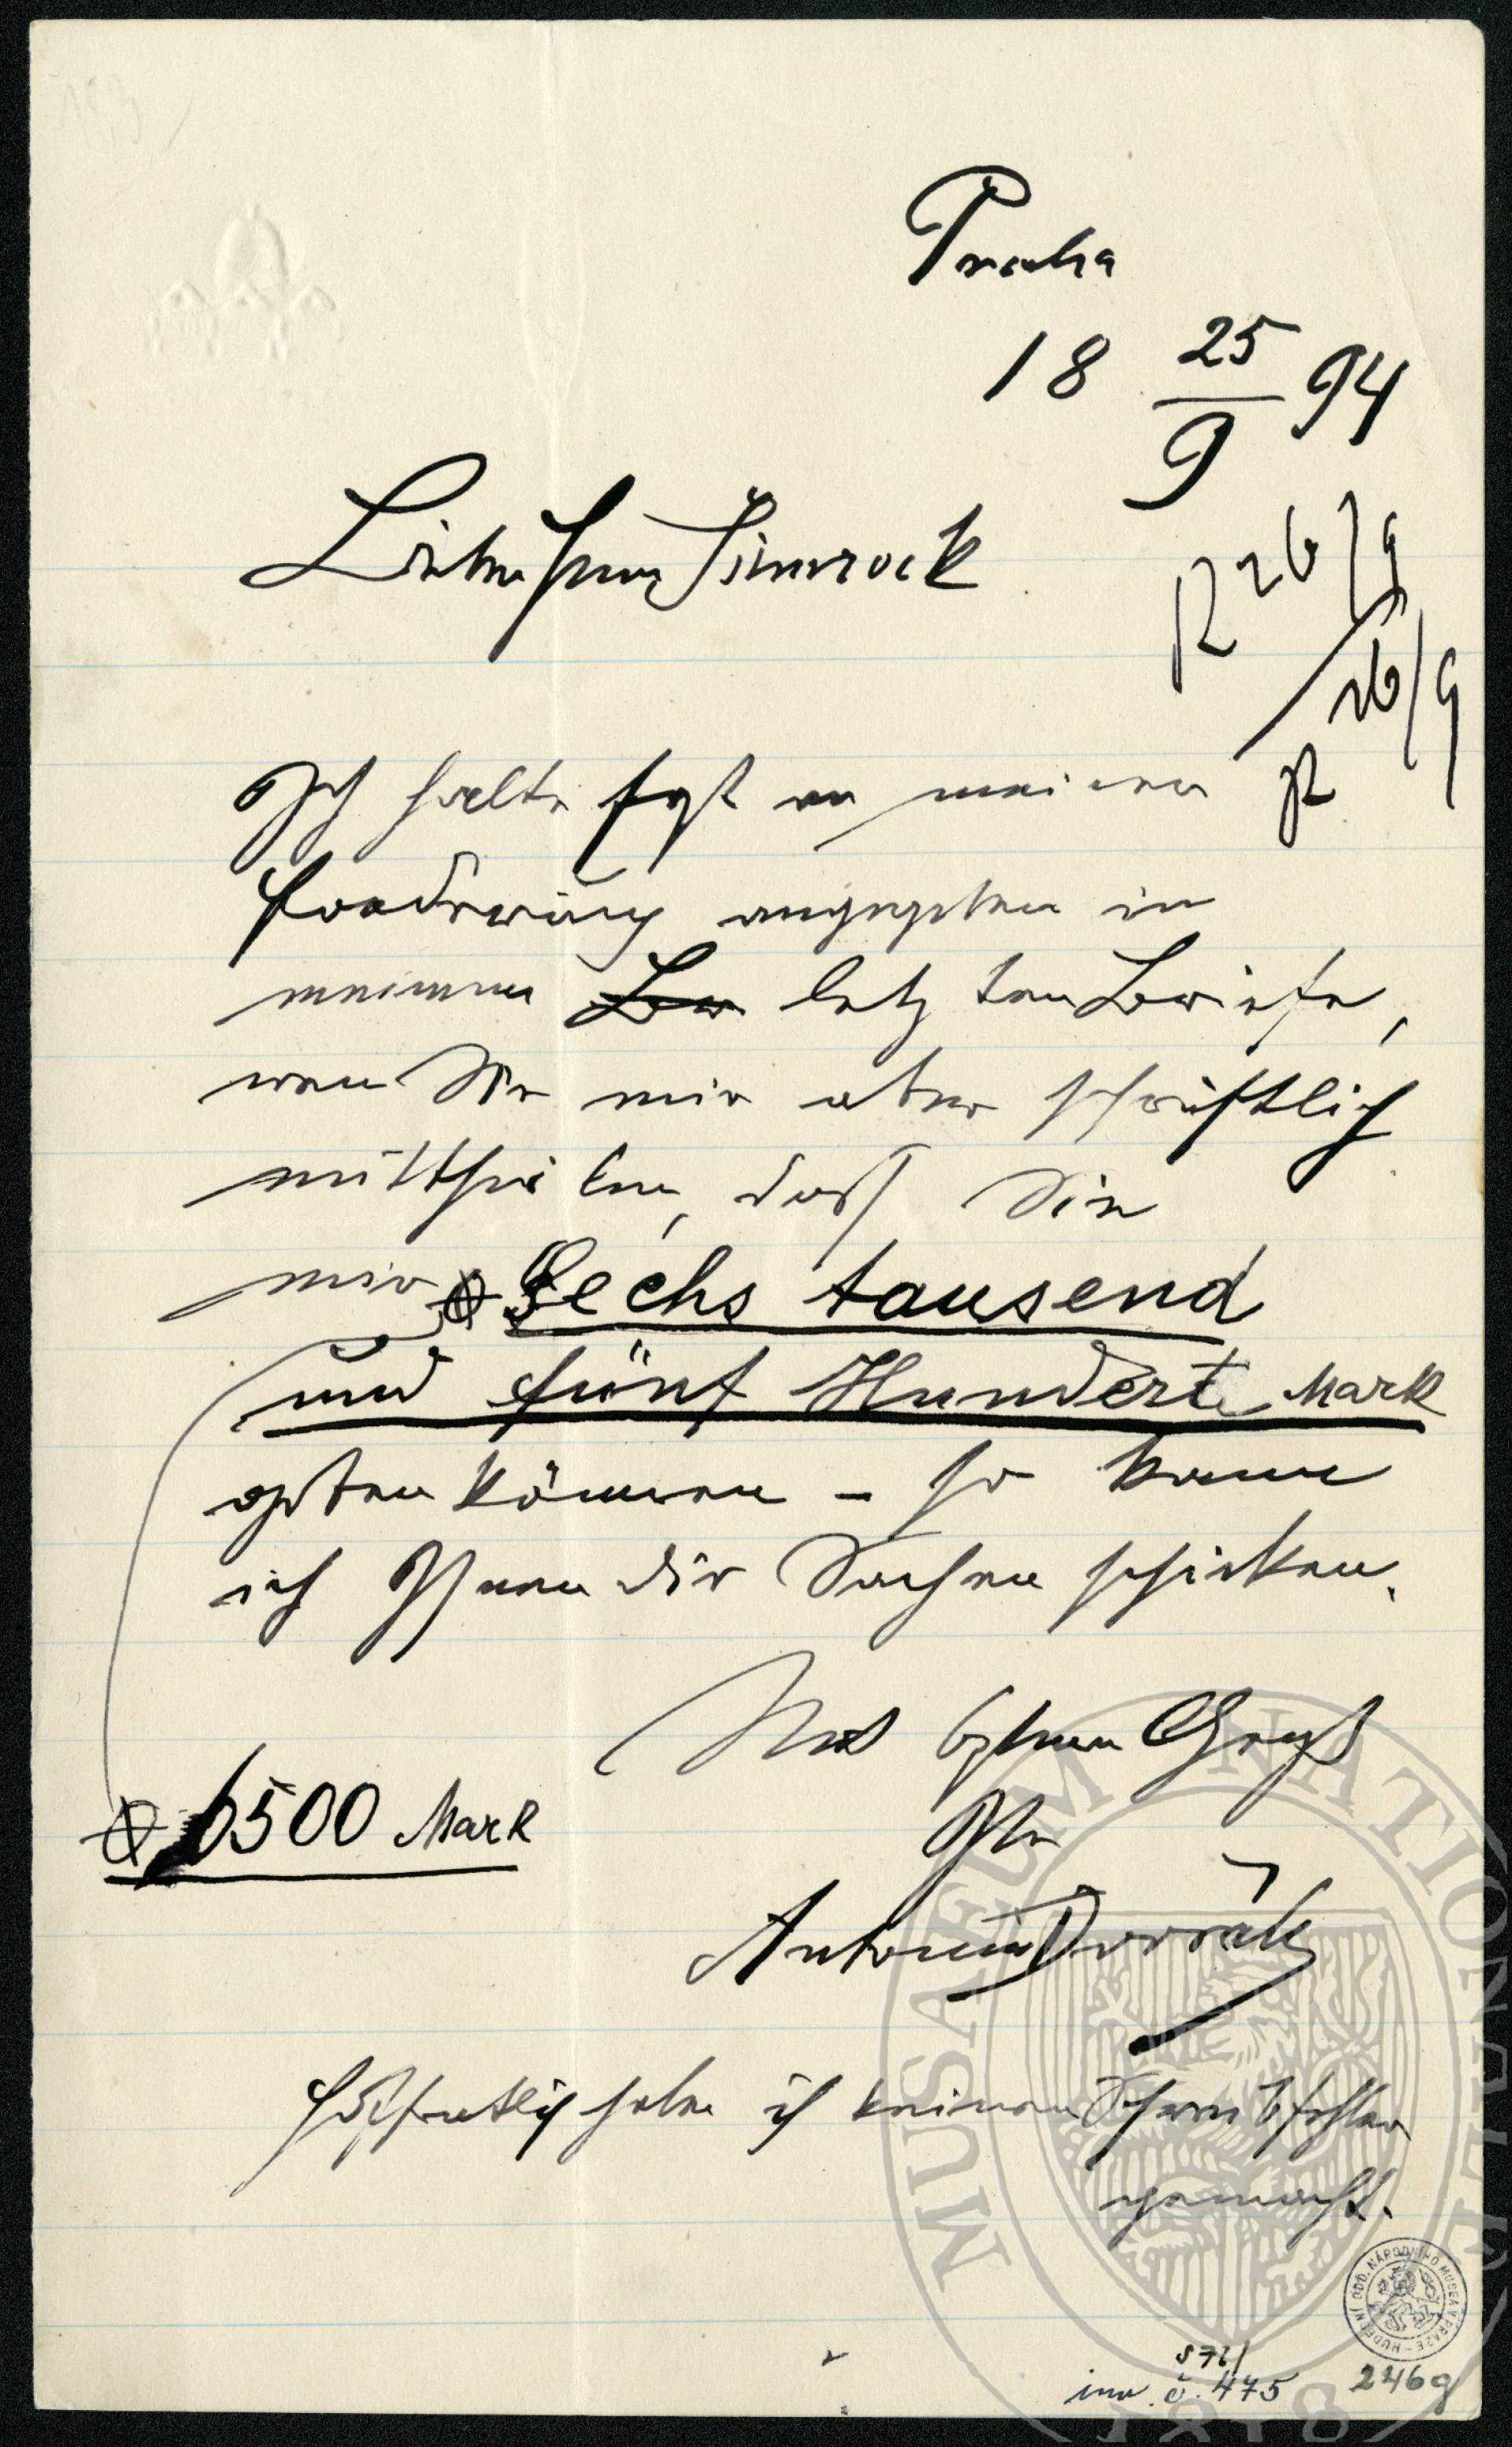 Praha
18 25/9 94
Lieber Herr Simrock
R 26/9
R 26/9
Ich halte fest an meiner
Forderung angegeben in
meinem Bri letzten Briefe,
wen Sie mir aber schriftlich
mittheilen, daß Sie
mir Sechs tausend
und fünf Hundert Mark
geben können – so kann
ich Ihnen die Sachen schicken.
Mit bestem Gruß
Ihr
6500 Mark
Antonín Dvořák
Hoffentlich habe ich keinen Schreibfehler
gemacht.
MUSAEUM NATIONALE
1818
HUDEBNÍ ODD. NÁRODNÍHO MUSEA V PRAZE
inv. č. 475